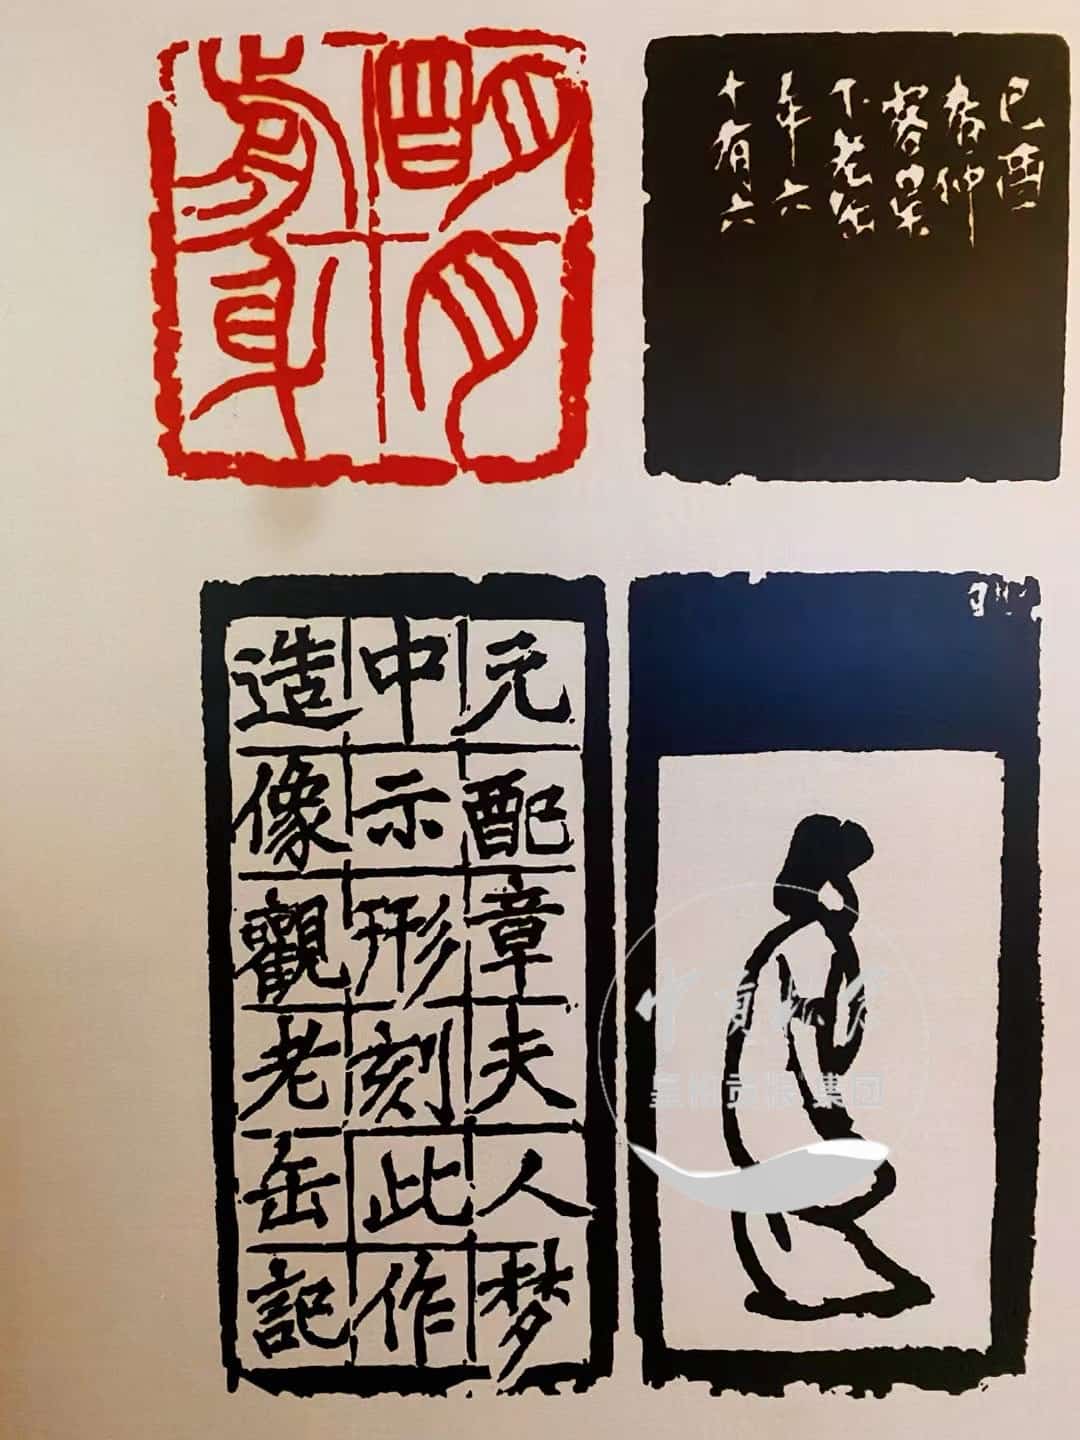 明月
前身
己酉
春仲
客吳
下老缶
年六
十有六
元配章夫人梦
中示形刻此作
造像觀老缶記
集团